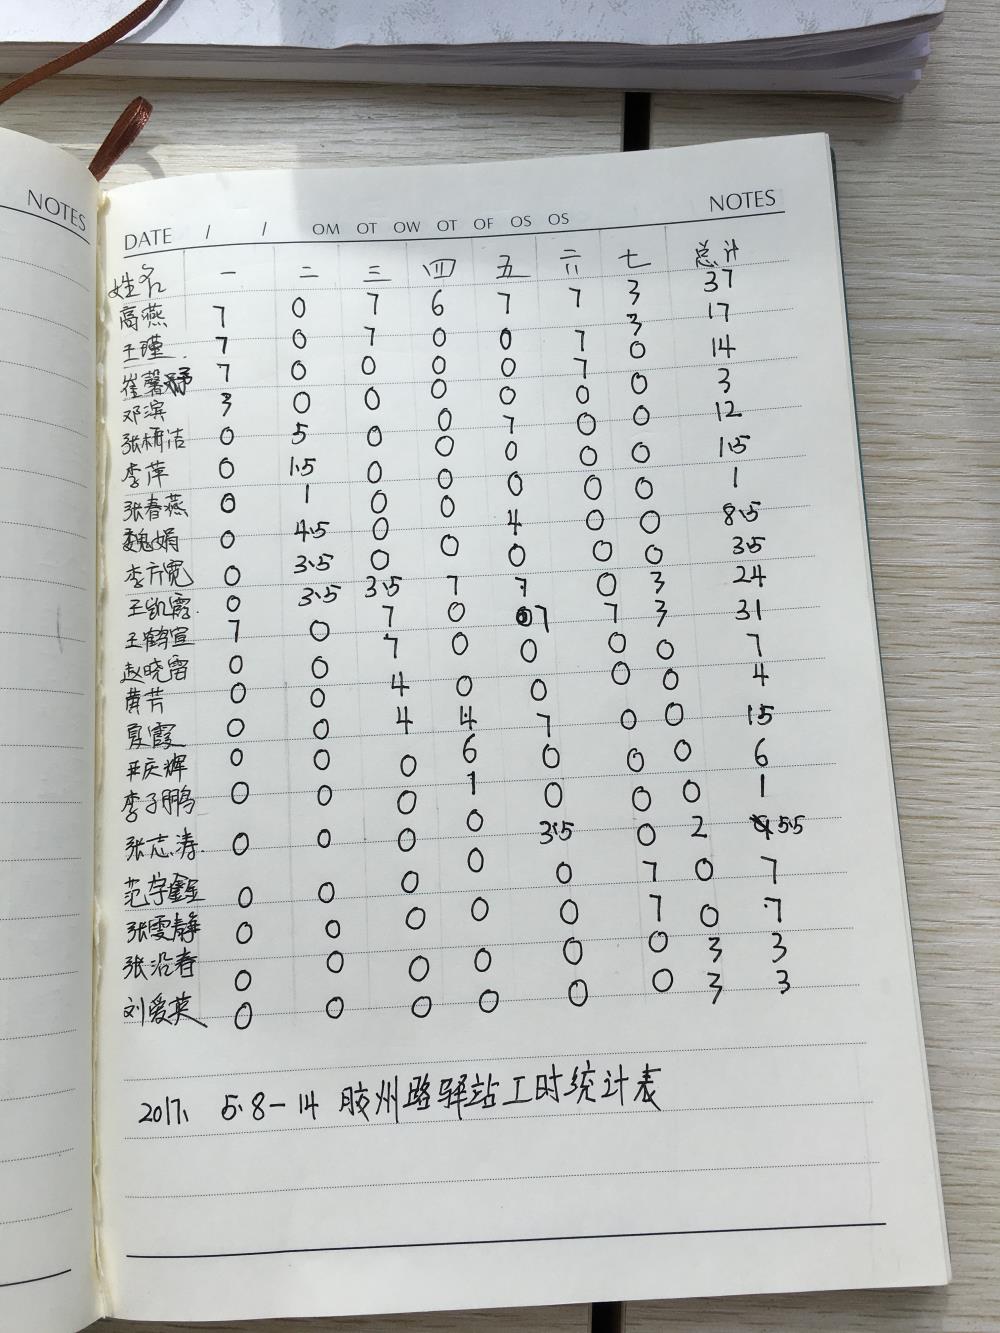 NOTES
DATE / / OM OT OW OT OF OS OS NOTES
姓名 一 二 三 四 五 六 七 总计
高燕 7 0 7 6 7 7 3 37
王瑾 7 0 7 0 0 7 3 17
崔馨 7 0 0 0 0 7 0 14
邓滨 3 0 0 0 0 0 0 3
张栖洁 0 5 0 0 7 0 0 12
李萍 0 1.5 0 0 0 0 0 1.5
张春燕 0 1 0 0 0 0 0 1
魏娟 0 4.5 0 0 4 0 0 8.5
李方宽 0 3.5 0 0 0 0 0 3.5
王凯霞 0 3.5 3.5 7 7 0 3 24
王鹤宣 7 0 7 0 7 7 3 31
赵晓雷 0 0 7 0 0 0 0 7
黄芳 0 0 4 0 0 0 0 4
夏霞 0 0 4 4 7 0 0 15
庆辉 0 0 0 6 0 0 0 6
李子鹏 0 0 0 1 0 0 0 1
张志涛 0 0 0 0 3.5 0 2 5.5
范学鑫 0 0 0 0 0 7 0 7
张雯静 0 0 0 0 0 7 0 7
张沿春 0 0 0 0 0 0 3 3
刘爱英 0 0 0 0 0 0 3 3
2017. 5.8-14 胶州路驿站工时统计表